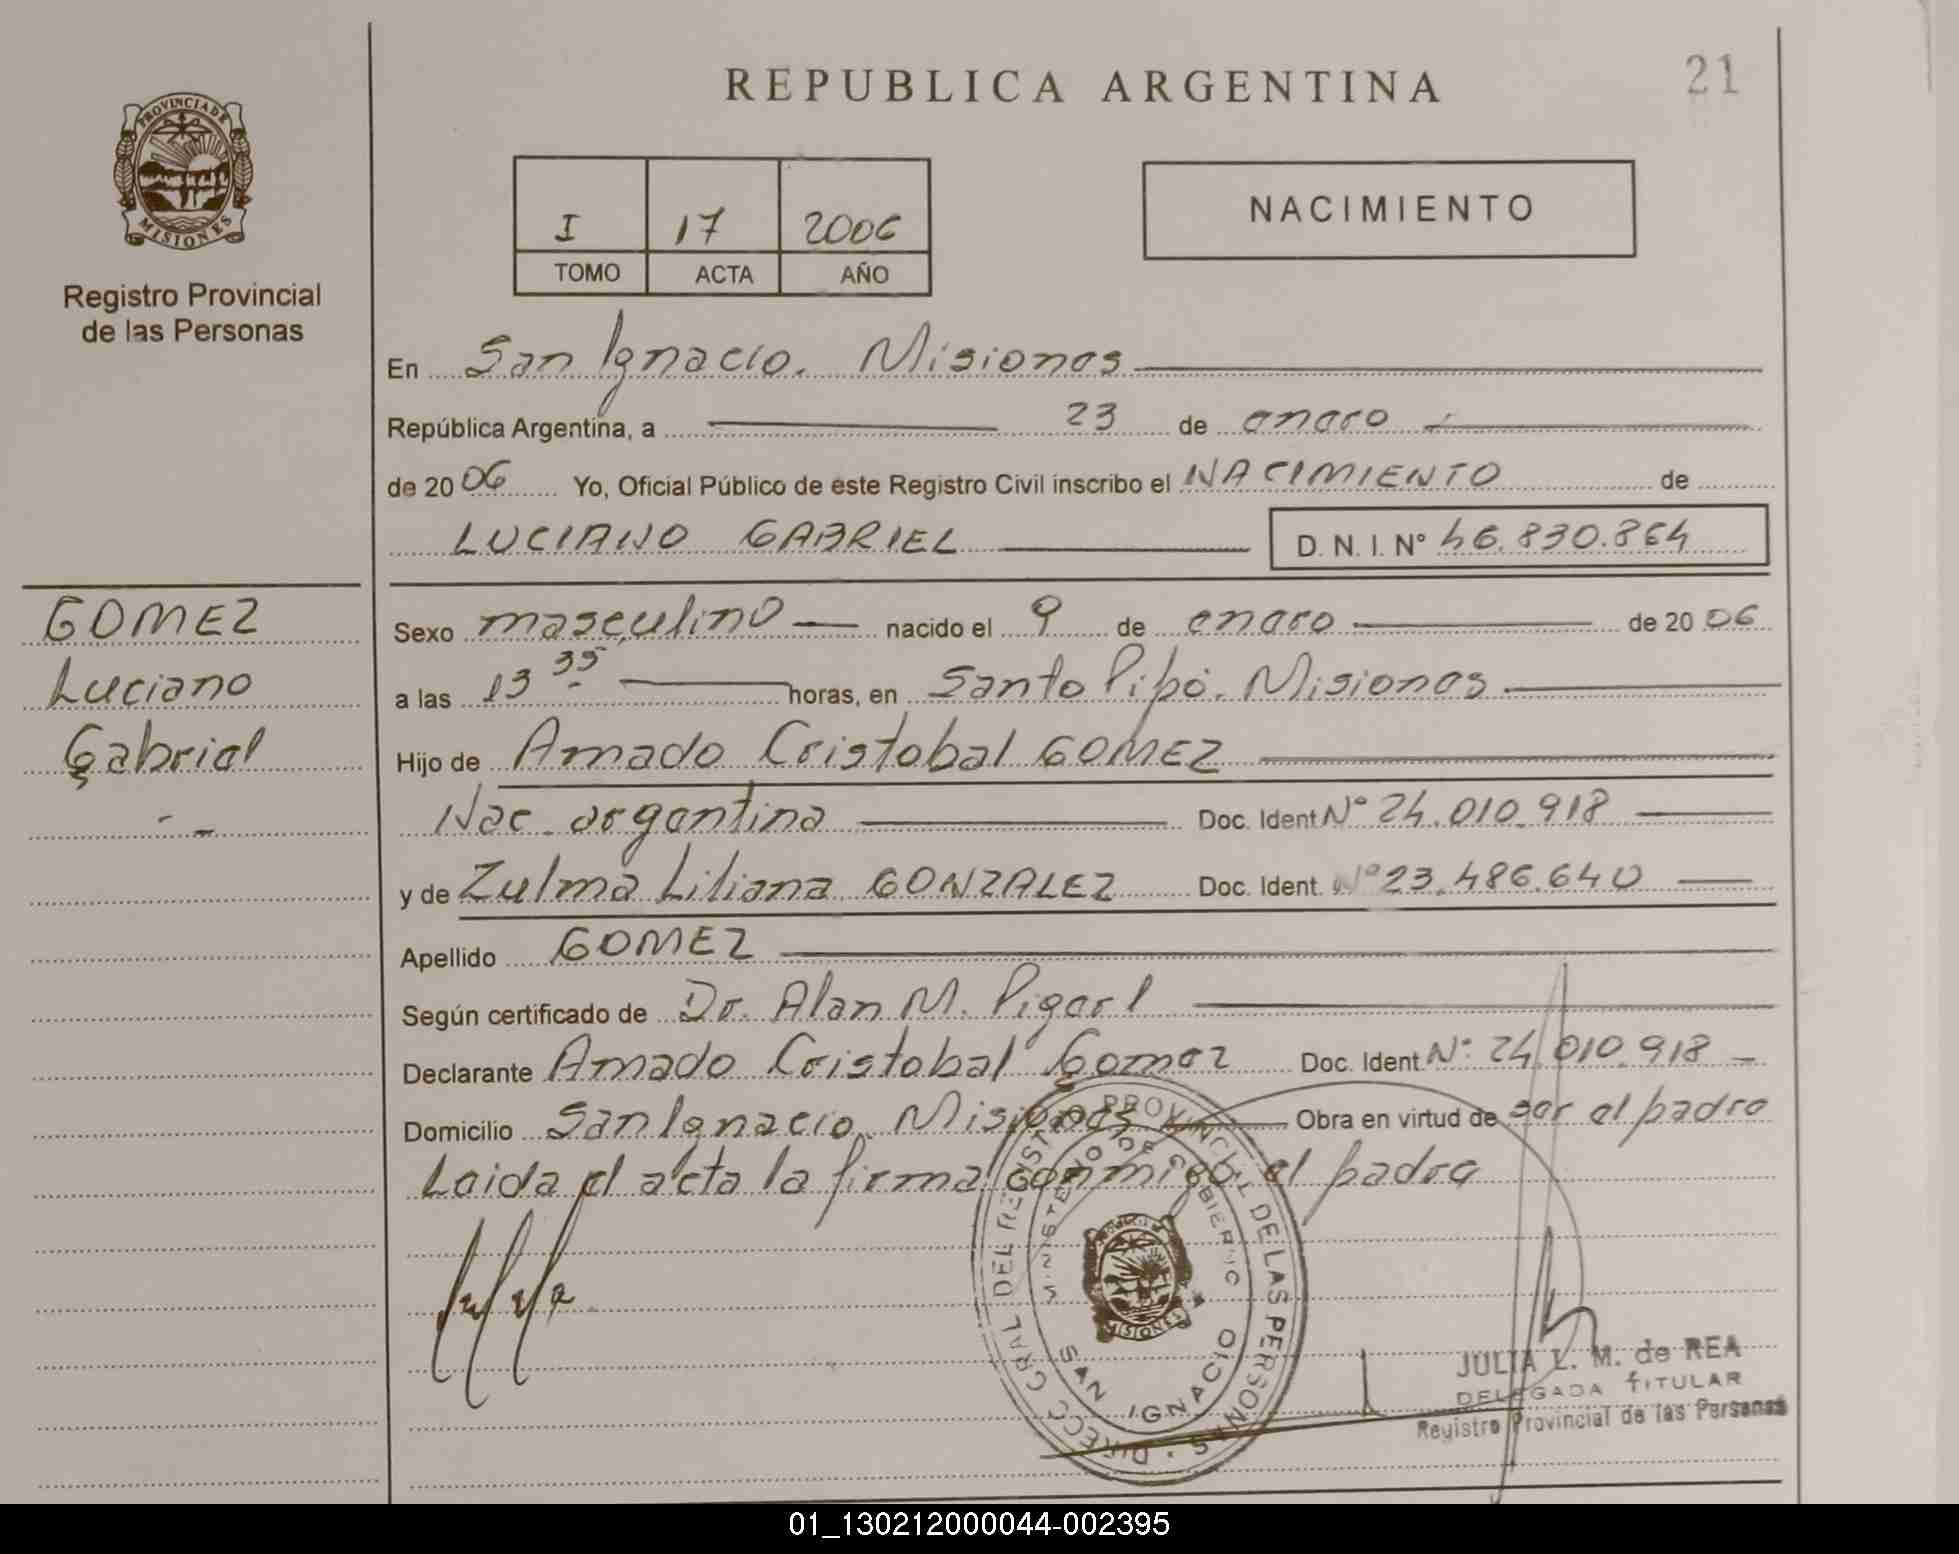 REPUBLICA ARGENTINA
21
PROVINCIA DE
MISIONES
Registro Provincial
de las Personas
I 17 2006
TOMO ACTA AÑO
NACIMIENTO
En San Ignacio. Misiones
República Argentina, a 23 de enero
de 20 06 Yo, Oficial Público de este Registro Civil inscribo el NACIMIENTO de
LUCIANO GABRIEL D. N. I. Nº 46.830.864
GOMEZ
Luciano
Gabriel
Sexo masculino nacido el 9 de enero de 20 06
a las 13 35 horas, en Santo Pipó. Misiones
Hijo de Amado Cristobal GOMEZ
Nac. argentina Doc. Ident. Nº 24.010.918
y de Zulma Liliana GONZALEZ Doc. Ident. Nº 23.486.640
Apellido GOMEZ
Según certificado de Dr. Alan M. Pigerl
Declarante Amado Cristobal Gomez Doc. Ident. Nº 24.010.918
Domicilio San Ignacio. Misiones Obra en virtud de ser el padre
Leida el acta la firma conmigo el padre
DIRECC GRAL DEL REGISTRO PROVINCIAL DE LAS PERSONAS
MINISTERIO DE GOBIERNO
MISIONES
SAN IGNACIO
JULIA L. M. de REA
DELEGADA TITULAR
Registro Provincial de las Personas
01_130212000044-002395